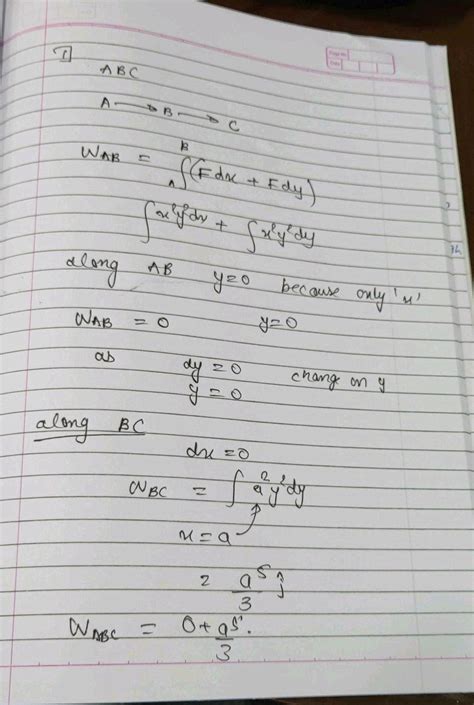 1
ABC
A → B → C
W_AB = ∫_A^B (Fdx + Fdy)
∫x²y²dx + ∫x²y²dy
along AB y=0 because only 'x'
W_AB = 0 y=0
as dy = 0 chang on y
y = 0
along BC
dx = 0
W_BC = ∫a²y²dy
x = a
= a⁵/3 ĵ
W_ABC = 0 + a⁵/3.